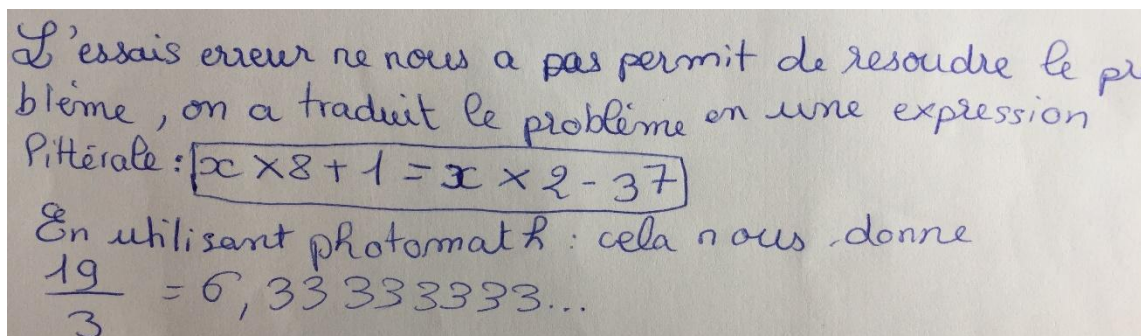 L'essais erreur ne nous a pas permit de resoudre le pr
blème, on a traduit le problème en une expression
littérale : x × 8 + 1 = x × 2 - 37
En utilisant photomath : cela nous donne
19/3 = 6,33333333...